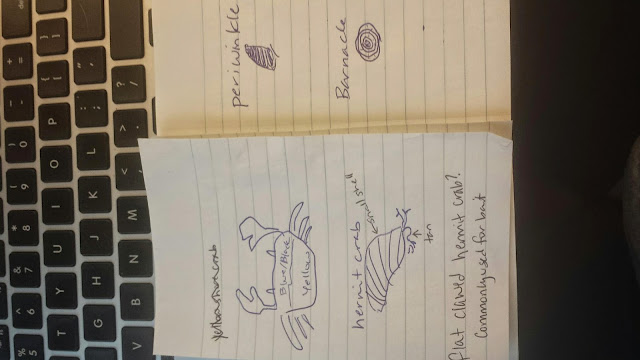 periwinkle
Barnacle
Yellow
hermit crab
shell
tan
Flat clawed hermit crab?
commonly used for bait
% 5
^ 6
& 7
* 8
( 9
) 0
_ -
+ =
T Y U I O P { [ } ]
G H J K L : ; " '
V B N M < , > . ? /